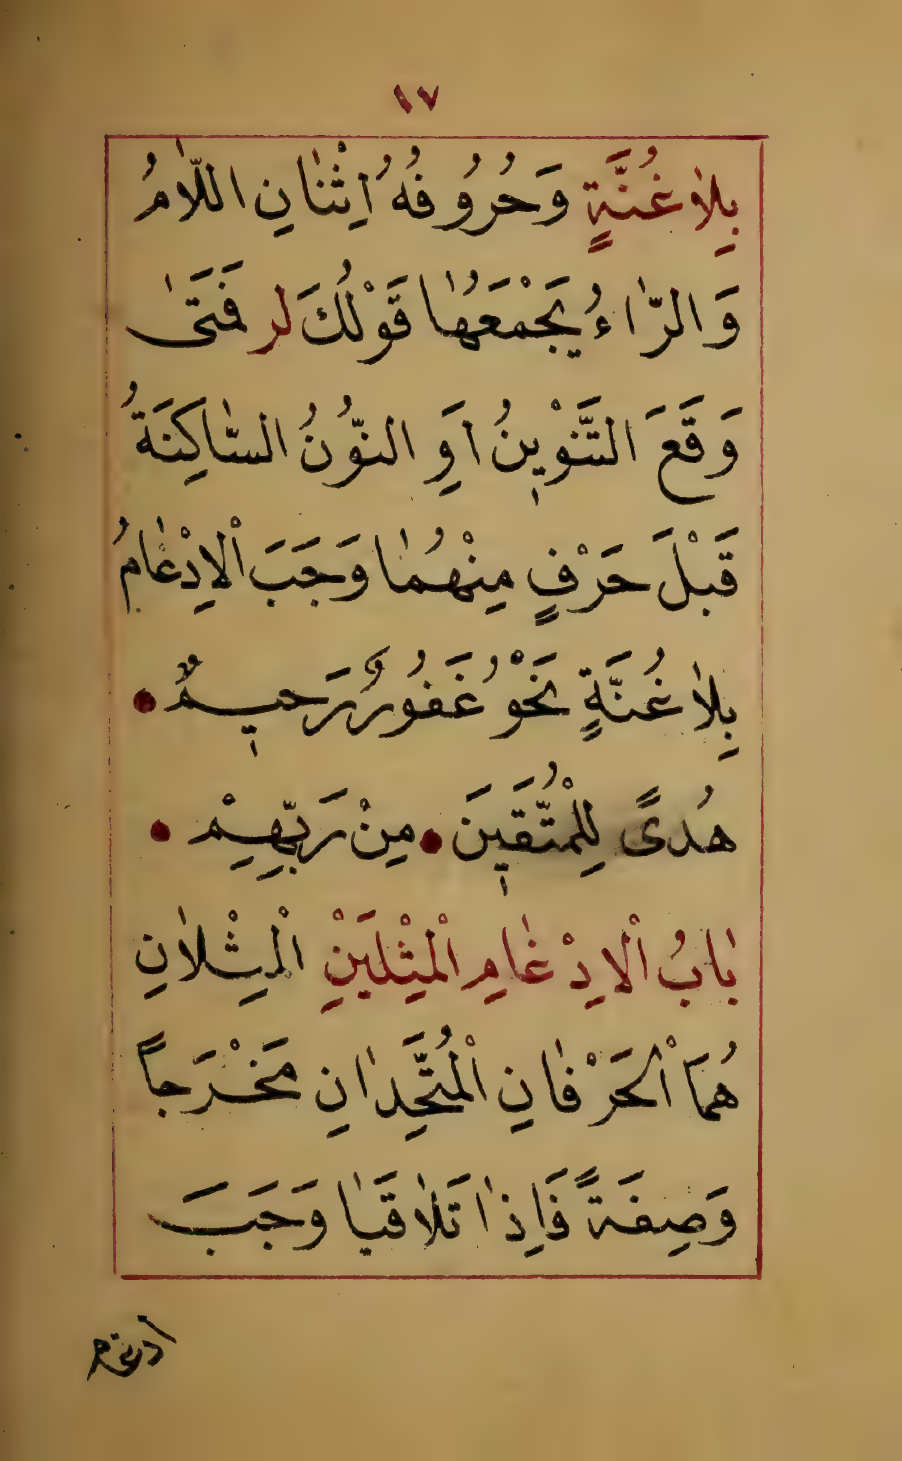 ١٧
بِلَا غُنَّةٍ وَحُرُوفُهُ اِثْنَانِ اللَّامُ
وَالرَّاءُ يَجْمَعُهَا قَوْلُكَ لر فَمَتَى
وَقَعَ التَّنْوِينُ اَوِ النُّونُ السَّاكِنَةُ
قَبْلَ حَرْفٍ مِنْهُمَا وَجَبَ الْاِدْغَامُ
بِلَا غُنَّةٍ نَحْوُ غَفُورٌ رَحِيمٌ •
هُدًى لِلْمُتَّقِينَ • مِنْ رَبِّهِمْ •
بَابُ الْاِدْغَامِ الْمِثْلَيْنِ الْمِثْلَانِ
هُمَا الْحَرْفَانِ الْمُتَّحِدَانِ مَخْرَجاً
وَصِفَةً فَاِذَا تَلَاقَيَا وَجَبَ
ادغام